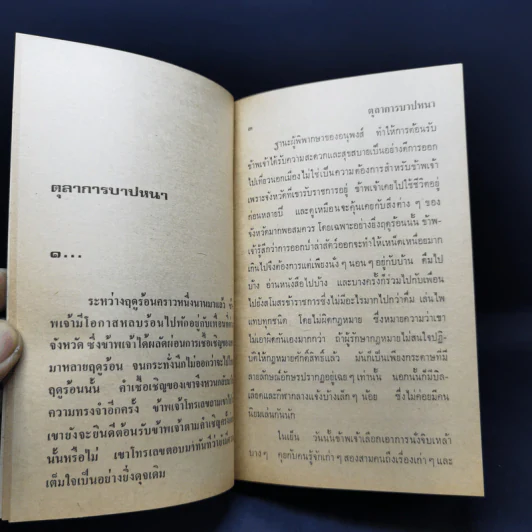 ตุลาการบาปหนา
๑...
ระหว่างฤดูร้อนคราวหนึ่งนานมาแล้ว ข้า
พเจ้ามีโอกาสหลบร้อนไปพักอยู่กับเพื่อนที่
จังหวัด ซึ่งข้าพเจ้าได้ผลัดผ่อนการเชื้อเชิญของ
มาหลายฤดูร้อน จนกระทั่งนึกไม่ออกว่าจะไป
ฤดูร้อนนั้น คำเชื้อเชิญของเขาจึงหวนกลับ
ความทรงจำอีกครั้ง ข้าพเจ้าโทรเลขถาม
เขายังจะยินดีต้อนรับข้าพเจ้าตามคำเชิญ
นั้นหรือไม่ เขาโทรเลขตอบมาทันทีว่า
เต็มใจเป็นอย่างยิ่งดุจเดิม
ตุลาการบาปหนา
๒
ฐานะผู้พิพากษาของอนุพงส์ ทำให้การต้อนรับ
ข้าพเจ้าได้รับความสะดวกและสุขสบายเป็นอย่างดีการออก
ไปเที่ยวนอกเมืองไม่ใช่เป็นความต้องการสำหรับข้าพเจ้า
เพราะจังหวัดที่เขารับราชการอยู่ ข้าพเจ้าเคยไปใช้ชีวิตอยู่
ก่อนหลายปี และดูเหมือนจะคุ้นเคยกับสิ่งต่าง ๆ ของ
จังหวัดมากพอสมควร โดยเฉพาะอย่างยิ่งฤดูร้อนนั้น ข้าพเ
จ้ารู้สึกว่าการออกป่าล่าสัตว์ออกจะทำให้เหน็ดเหนื่อยมาก
เกินไปจึงต้องการแค่เพียงนั่ง ๆ นอน ๆ อยู่กับบ้าน ดื่มไป
บ้าง อ่านหนังสือไปบ้าง และบางครั้งก็ร่วมไปกับเพื่อน
ไปยังสโมสรข้าราชการซึ่งไม่มีอะไรมากไปกว่าดื่ม เล่นไพ่
แทบทุกชนิด โดยไม่ผิดกฎหมาย ซึ่งหมายความว่าเขา
ไม่เอาผิดกันเองมากกว่า ถ้าผู้รักษากฎหมายไม่สนใจปฏิ
บัติให้กฎหมายศักดิ์สิทธิ์แล้ว มันก็เป็นเพียงกระดาษที่มี
ลายลักษณ์อักษรปรากฏอยู่เฉย ๆ เท่านั้น นอกนั้นก็มีบิล
เลียดและกีฬากลางแจ้งบ้างเล็ก ๆ น้อย ซึ่งไม่ค่อยมีคน
นิยมเล่นกันนัก
ในเย็น วันนั้นข้าพเจ้าเลือกเอาการนั่งจิบเหล้า
บาง ๆ คุยกับคนรู้จักเก่า ๆ สองสามคนถึงเรื่องเก่า ๆ และ